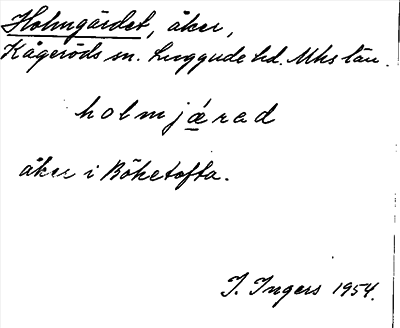 Holmgärdet, åker,
Kågeröds sn. Luggude hd. Mhs län.
holmjǽ̱rad
åker i Böketofta.
I. Ingers 1954.